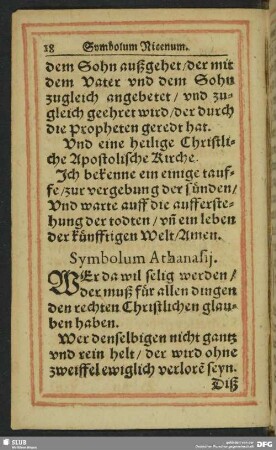 18 Symbolum Nicenum.
dem Sohn außgehet/der mit
dem Vater vnd dem Sohn
zugleich angebetet / vnd zu-
gleich geehret wird/der durch
die Propheten geredt hat.
Vnd eine heilige Christli-
che Apostolische Kirche.
Ich bekenne ein einige tauf-
fe/zur vergebung der sünden/
Vnd warte auff die aufferste-
hung der todten/ vñ ein leben
der künfftigen Welt/Amen.
Symbolum Athanasij.
WEr da wil selig werden/
der muß für allen dingen
den rechten Christlichen glau
ben haben.
Wer denselbigen nicht gantz
vnd rein helt/ der wird ohne
zweiffel ewiglich verlorẽ seyn.
Diß
SLUB
DFG